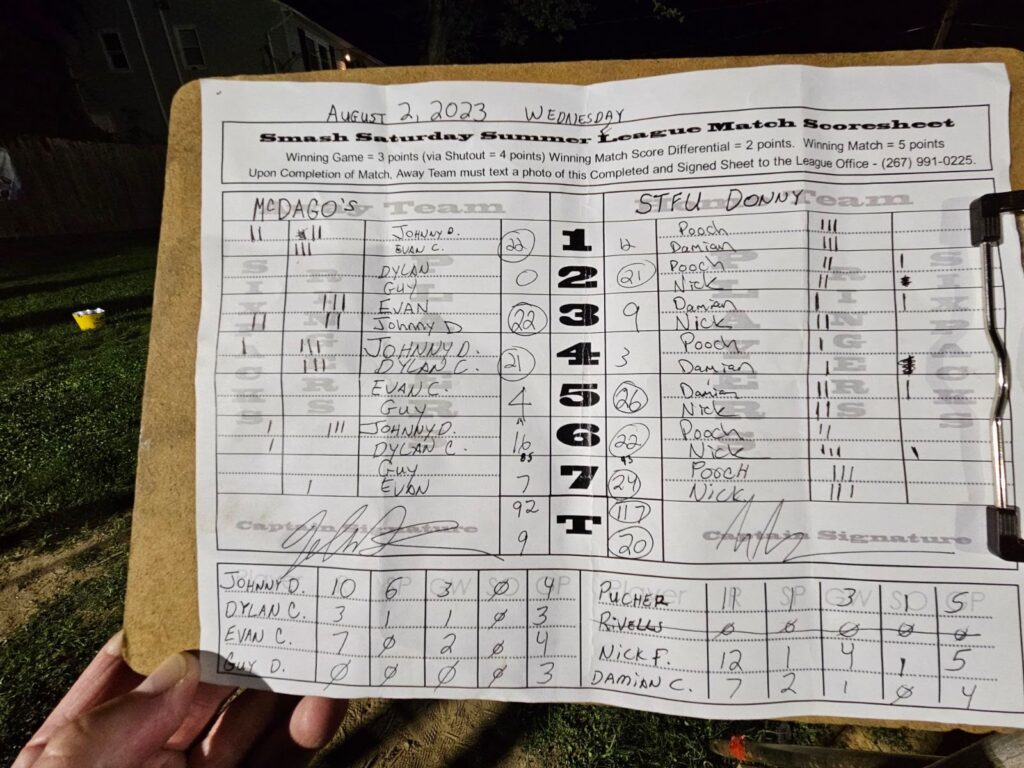 AUGUST 2, 2023 WEDNESDAY
Smash Saturday Summer League Match Scoresheet
Winning Game = 3 points (via Shutout = 4 points) Winning Match Score Differential = 2 points. Winning Match = 5 points
Upon Completion of Match, Away Team must text a photo of this Completed and Signed Sheet to the League Office - (267) 991-0225.
McDAGO's Team STFU DONNY
JOHNNY D. 22 1 Pooch
EVAN C. Damian
DYLAN 0 2 21 Pooch
GUY Nick
EVAN 22 3 9 Damian
Johnny D Nick
JOHNNY D. 21 4 3 Pooch
DYLAN C. Damian
EVAN C. 4 5 26 Damian
GUY Nick
JOHNNY D. 16 6 22 Pooch
DYLAN C. Nick
GUY 7 7 24 POOCH
EVAN NICK
92 T 117
Captain Signature 9 20 Captain Signature
JOHNNY D. 10 6 3 Ø 4 PUCHER 11 1 3 1 5
DYLAN C. 3 1 1 Ø 3 RIVELLS Ø Ø Ø Ø Ø
EVAN C. 7 Ø 2 Ø 4 NICK F. 12 1 4 1 5
GUY D. Ø Ø Ø Ø 3 DAMIAN C. 7 2 1 Ø 4